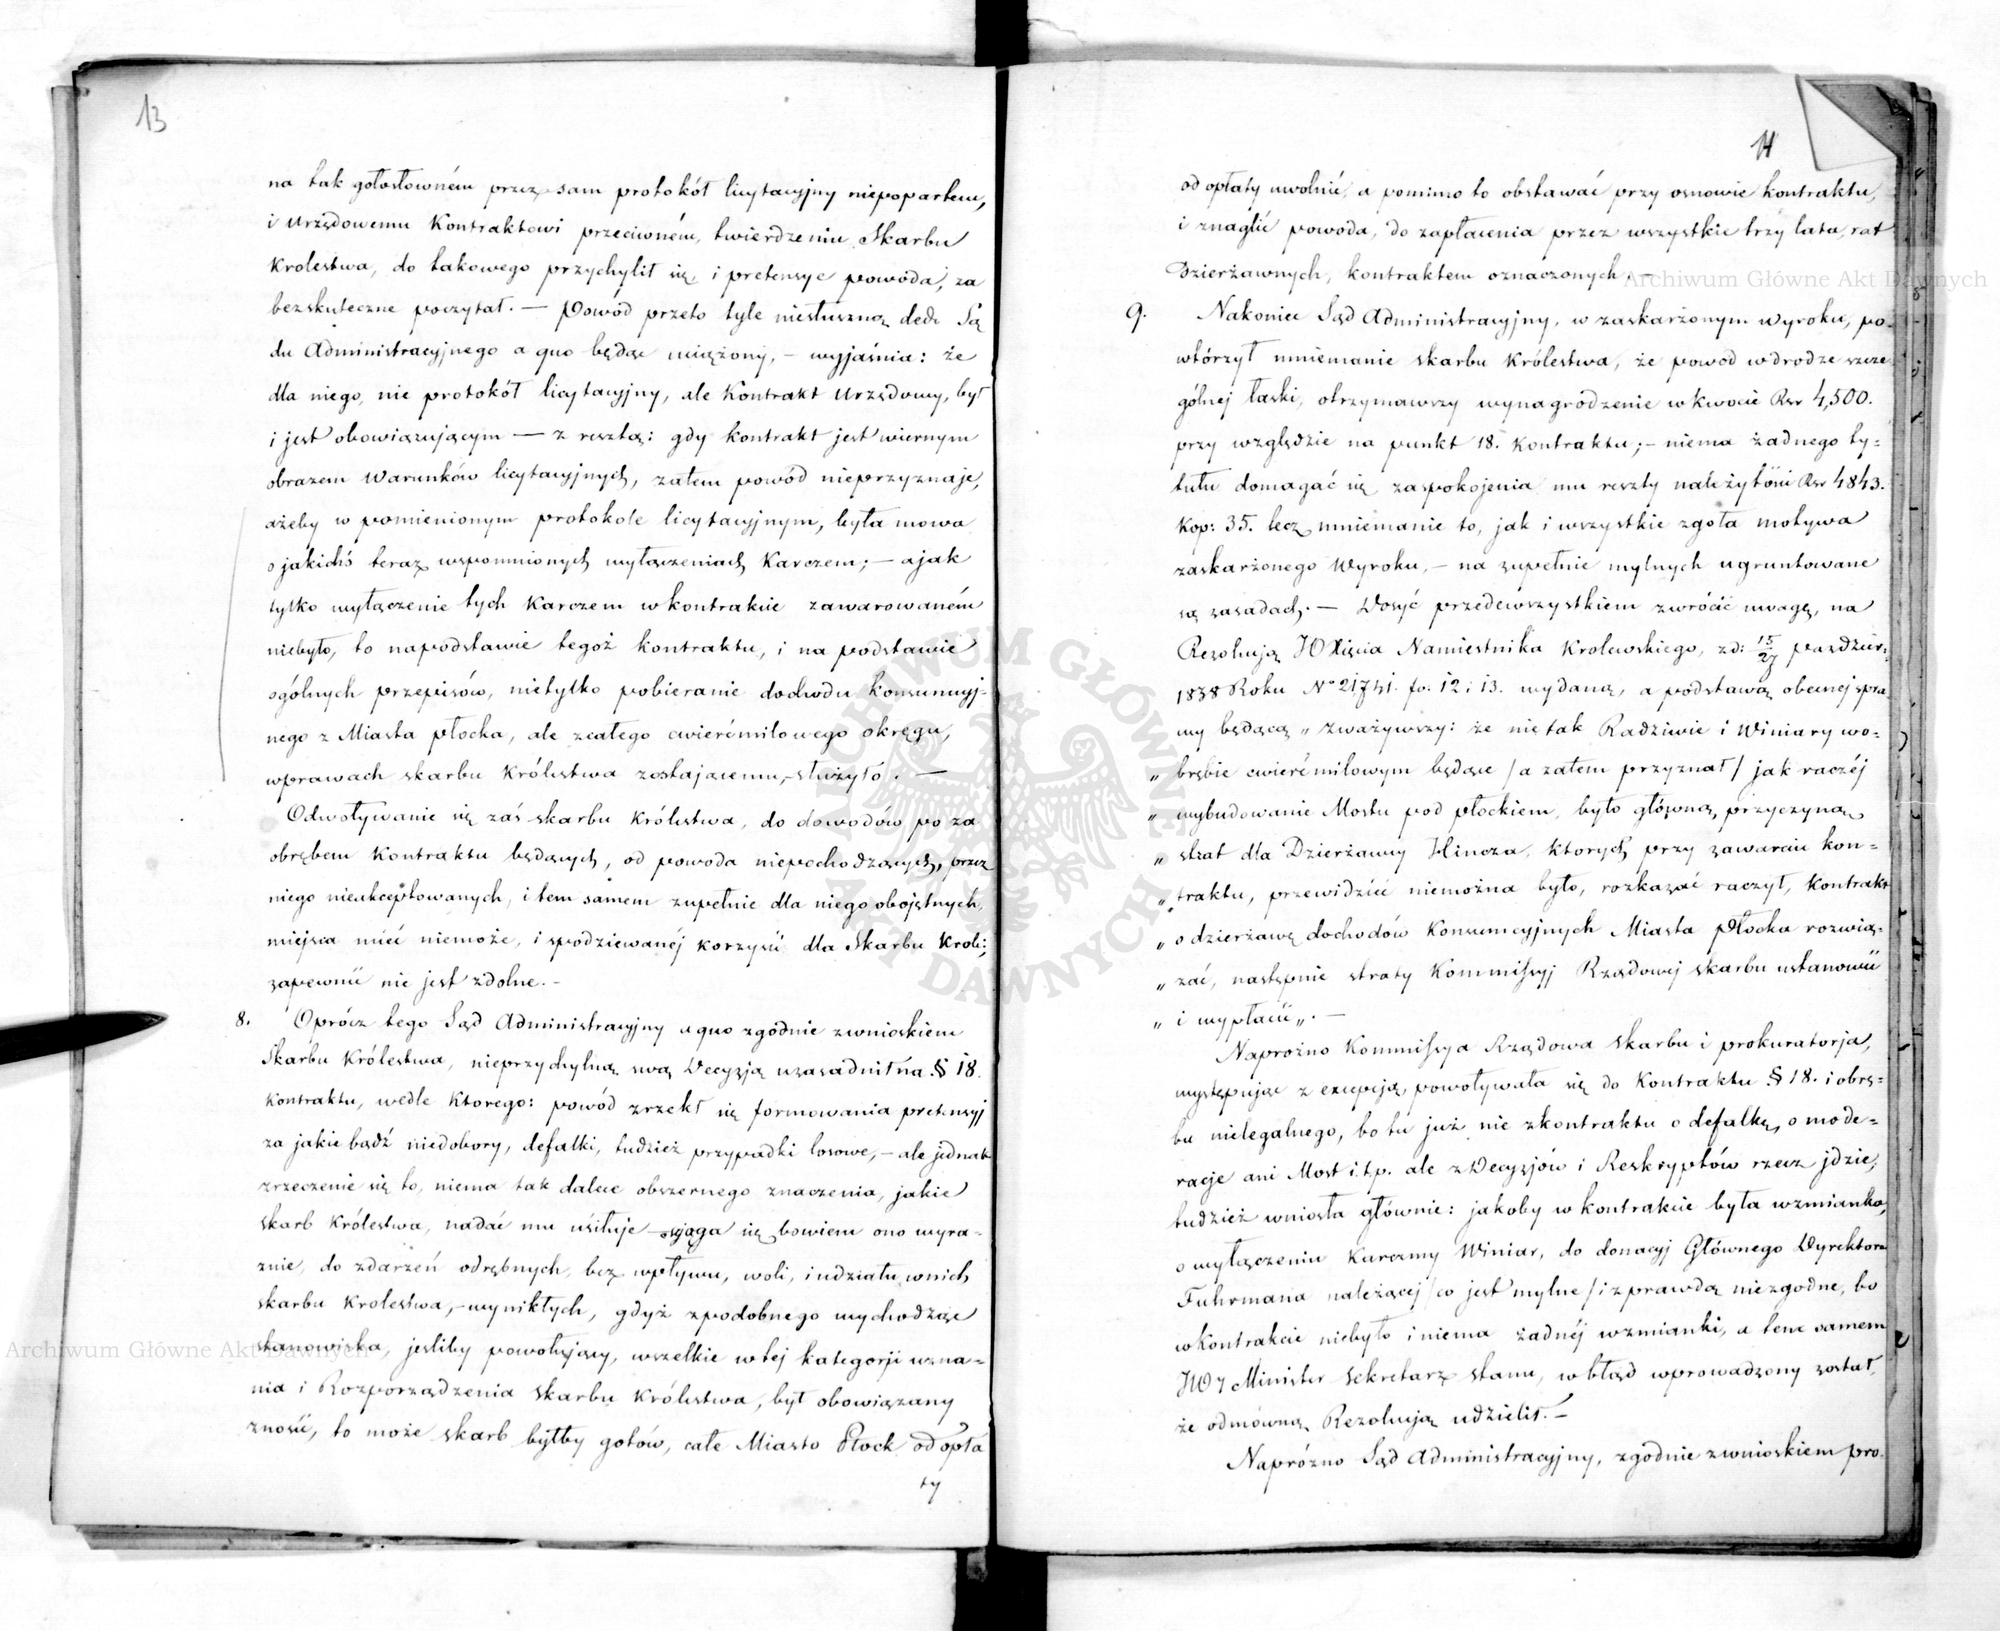 13
na tak gołosłowném przez sam protokół licytacyjny niepopartem,
i Urzędowemu Kontraktowi przeciwném, twierdzeniu Skarbu
Krolestwa, do takowego przychylił się, i pretensye powoda, za
bezskuteczne poczytał. — Powód przeto tyle niesłuszną
du Administracyjnego a quo będąc uciążony, – wyjaśnia: że
dla niego, nie protokół licytacyjny, ale Kontrakt Urzędowy, był
i jest obowiązującym — z resztą: gdy kontrakt jest wiernym
obrazem Warunków licytacyjnych, zatem powód nieprzyznaje,
ażeby w pomienionym protokole licytacyjnym, była mowa
o jakichś teraz wspomnionych wyłączeniach Karczem; — a jak
tylko wyłączenie tych Karczem w kontrakcie zawarowaném
niebyło, to na podstawie tegoż kontraktu, i na podstawie
ogólnych przepisów, nietylko pobieranie dochodu konsumcyj-
nego z Miasta płocka, ale z całego cwierćmilowego okręgu,
w prawach skarbu Królestwa zostającemu, – służyło. —
Odwoływanie się zaś skarbu Królestwa, do dowodów po za
obrębem Kontraktu będących, od powoda niepochodzących, przez
niego nieakceptowanych, i tem samem zupełnie dla niego obojętnych,
miejsca mieć niemoże, i spodziewanéj korzyści dla Skarbu Krole:
zapewnić nie jest zdolne. –
8. Oprócz tego Sąd Administracyjny a quo zgodnie z wnioskiem
Skarbu Królestwa, nieprzychylną swą Decyzją uzasadnił na § 18.
kontraktu, wedle Ktorego: powód zrzekł się formowania pretensyj
za jakie bądź niedobory, defalki, tudzież przypadki losowe, – ale jednak
zrzeczenie się to, niema tak dalece obszernego znaczenia, jakie
skarb Królestwa, nadać mu usiłuje – ściąga się bowiem ono wyra-
znie, do zdarzeń odrębnych, bez wpływu, woli, i udziału w nich
skarbu Krolestwa, – wynikłych, gdyż z podobnego wychodząc
stanowiska, jesliby powołujący, wszelkie w tej kategorji uzna-
nia i Rozporządzenia skarbu Królestwa, był obowiązany
znosić, to może skarb byłby gotów, całe Miasto Płock od opła
ty
14
od opłaty uwolnić, a pomimo to obstawać przy osnowie kontraktu,
i znaglić powoda, do zapłacenia przez wszystkie trzy lata, rat
Dzierżawnych, kontraktem oznaczonych. —
9. Nakoniec Sąd Administracyjny, w zaskarżonym wyroku, po-
wtórzył mniemanie skarbu Królestwa, że powód w drodze szcze
gólnej łaski, otrzymawszy wynagrodzenie w kwocie Rsr 4,500.
przy względzie na punkt 18. kontraktu; – niema żadnego ty-
tułu domagać się zaspokojenia mu reszty należytości Rsr 4843.
Kop: 35. lecz mniemanie to, jak i wszystkie zgoła motywa
zaskarżonego Wyroku, – na zupełnie mylnych ugruntowane
są zasadach. — Dosyć przedewszystkiem zwrócić uwagę, na
Rezolucją JO Xięcia Namiestnika Krolewskiego, z d: 15/27 pazdzier:
1838 Roku N° 21741. fo. 12 i 13. wydaną, a podstawą obecnej spra
wy będącą „ Zważywszy: że nie tak Radziwie i Winiary wo-
„ brębie cwierćmilowym będące /a zatem przyznał/ jak raczéj
„ wybudowanie Mostu pod płockiem, było główną przyczyną
„ strat dla Dzierżawcy Hincza, ktorych przy zawarciu kon-
„ traktu, przewidzieć niemożna było, rozkazać raczył, kontrakt
„ o dzierżawę dochodów Konsumcyjnych Miasta Płocka rozwią-
„ zać, następnie straty Kommissyj Rządowej skarbu ustanowić
„ i wypłacić „. —
Naprożno Kommissya Rządowa skarbu i prokuratorja,
występując z excepcją, powoływała się do Kontraktu § 18. i obrę-
bu nielegalnego, bo tu już nie z kontraktu o defalkę, o mode-
racje ani Most i.t.p. ale z Decyzjów i Reskryptów rzecz jdzie,
tudzież wniosła głównie: jakoby w kontrakcie była wzmianka,
o wyłączeniu Karczmy Winiar, do donacyj Głównego Dyrektora
Fuhrmana należącej /co jest mylne/ i z prawdą niezgodne, bo
w Kontrakcie niebyło i niema żadnéj wzmianki, a tem samem
JW Minister Sekretarz stanu, w błąd wprowadzony został,
że odmówną Rezolucją udzielił. —
Napróżno Sąd Administracyjny, zgodnie z wnioskiem pro.
Archiwum Główne Akt Dawnych
Archiwum Główne Akt Dawnych
ARCHIWUM GŁÓWNE AKT DAWNYCH